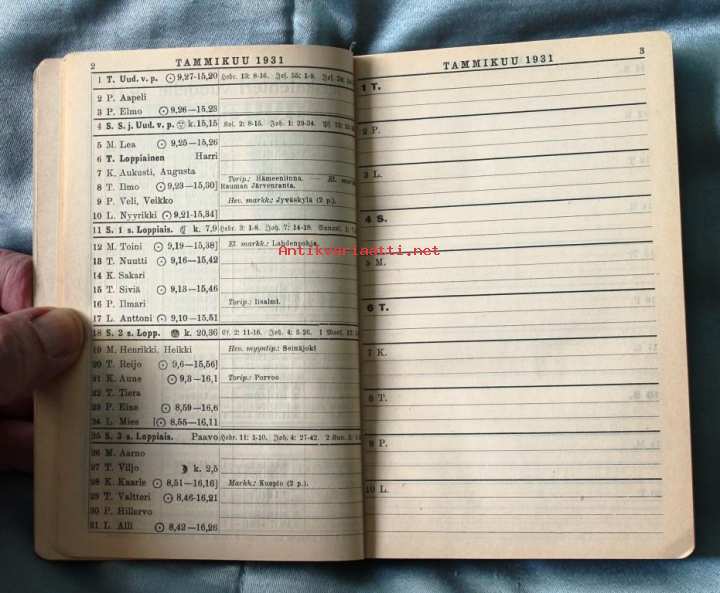 2 TAMMIKUU 1931
1 T. Uud. v. p. 9,27—15,20 Hebr. 13: 8-16. Jes. 55: 1-9.
2 P. Aapeli
3 P. Elmo 9,26—15,23
4 S. S. j. Uud. v. p. k. 15,15 2: 8-15. Joh. 1: 29-34.
5 M. Lea 9,25—15,26
6 T. Loppiainen Harri
7 K. Aukusti, Augusta
Torip.: Hämeenlinna. — El. mark
8 T. Ilmo 9,23—15,30] Rauman Järvenranta.
9 P. Veli, Veikko Hev. markk.: Jyväskylä (2 p.).
10 L. Nyyrikki 9,21-15,34]
11 S. 1 s. Loppiais. k. 7,9 Hebr. 3: 1-6. Joh. 7: 14-18.
12 M. Toini 9,19—15,38] El. markk.: Lahdenpohja.
13 T. Nuutti 9,16—15,42
14 K. Sakari
15 T. Siviä 9,13—15,46
16 P. Ilmari Torip.: Iisalmi.
17 L. Anttoni 9,10—15,51
18 S. 2 s. Lopp. k. 20,36 2: 11-16. Joh. 4: 5-26.
19 M. Henrikki, Heikki Hev. myyntip.: Seinäjoki
20 T. Reijo 9,6—15,56]
21 K. Aune 9,3—16,1 Torip.: Porvoo
22 T. Tiera
23 P. Eine 8,59—16,6
24 L. Mies [8,55—16,11
25 S. 3 s. Loppiais. Paavo Hebr. 11: 1-10. Joh. 4: 27-42.
26 M. Aarno
27 T. Viljo k. 2,5
28 K. Kaarle 8,51—16,16] Markk.: Kuopio (2 p.).
29 T. Valtteri 8,46-16,21
30 P. Hillervo
31 L. Alli 8,42—16,26
TAMMIKUU 1931 3
1 T.
2 P.
3 L.
4 S.
5 M.
6 T.
7 K.
8 T.
9 P.
10 L.
Antikvariaatti.net